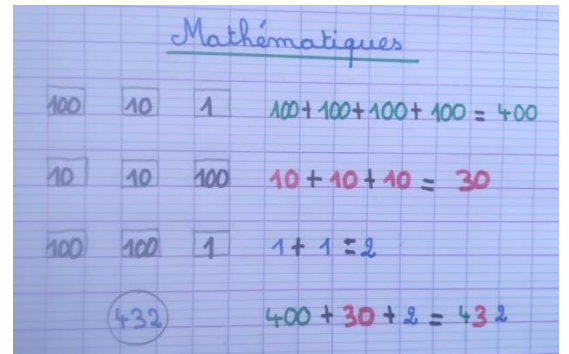 Mathématiques
100 10 1 100+100+100+100 = 400
10 10 100 10+10+10 = 30
100 100 1 1+1=2
432 400+30+2 = 432